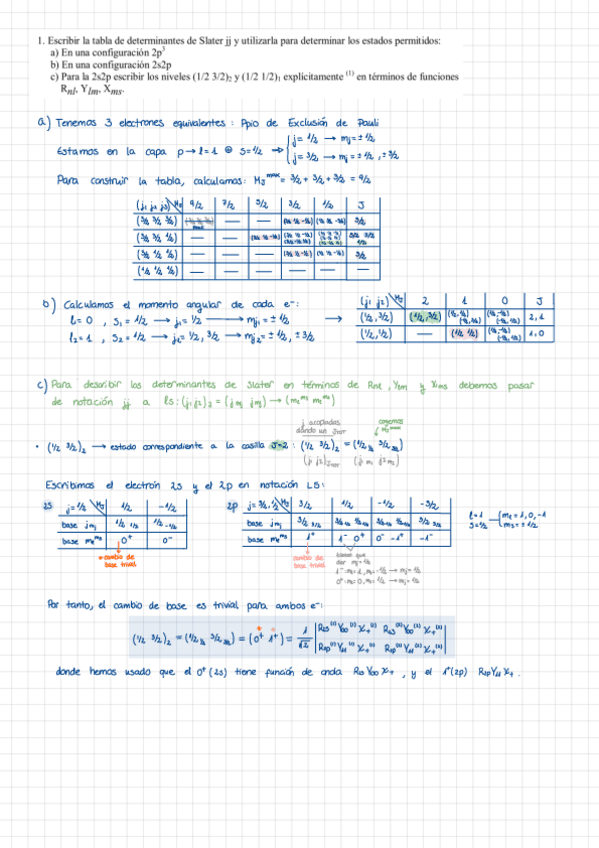 1. Escribir la tabla de determinantes de Slater jj y utilizarla para determinar los estados permitidos:
a) En una configuración 2p³
b) En una configuración 2s2p
c) Para la 2s2p escribir los niveles (1/2 3/2)₂ y (1/2 1/2)₁ explícitamente ⁽¹⁾ en términos de funciones
Rₙₗ, Yₗₘ, Xₘₛ.
a) Tenemos 3 electrones equivalentes : Ppio de Exclusión de Pauli
Estamos en la capa p → l=1 ⊕ s=1/2 ⇒ { j= 1/2 → mj = ± 1/2
j= 3/2 → mj = ± 1/2 , ± 3/2
Para construir la tabla, calculamos: MJ^max = 3/2 + 3/2 + 3/2 = 9/2
(j₁ j₂ j₃) MJ 9/2 7/2 5/2 3/2 1/2 J
b) Calculamos el momento angular de cada e⁻:
l₁=0 , s₁ = 1/2 → j₁= 1/2 → mj₁ = ± 1/2
l₂=1 , s₂ = 1/2 → j₂= 1/2, 3/2 → mj₂ = ± 1/2, ± 3/2
→
(j₁ j₂) MJ 2 1 0 J
(1/2, 3/2) (1/2, 3/2) 2, 1
(1/2, 1/2) — (1/2 1/2) 1, 0
c) Para describir los determinantes de Slater en términos de Rnl, Ylm y Xms debemos pasar
de notación jj a ls: (j₁ j₂)J = (jm₁ jm₂) → (ml^ms ml^ms)
j acoplados dando un Jtot
cogemos MJ^max
• (1/2 3/2)₂ → estado correspondiente a la casilla J=2 : (1/2 3/2)₂ = (1/2 1/2 3/2 3/2)
(j₁ j₂)Jtot (j₁ m₁ j₂ m₂)
Escribimos el electrón 2s y el 2p en notación LS:
2s j=1/2 MJ 1/2 -1/2
base jmj 1/2 1/2 1/2 -1/2
base ml^ms 0⁺ 0⁻
cambio de base trivial
2p j=3/2, 1/2 MJ 3/2 1/2 -1/2 -3/2
base jmj
base ml^ms 1⁺ 1⁻ 0⁺ 0⁻ -1⁺ -1⁻
cambio de base trivial
tienen que dar mj = 1/2
1⁻: ml=1, ms=-1/2 → mj = 1/2
0⁺: ml=0, ms=1/2 → mj = 1/2
l=1 s=1/2 { ml = 1, 0, -1
ms = ± 1/2
Por tanto, el cambio de base es trivial para ambos e⁻:
(1/2 3/2)₂ = (1/2 1/2 3/2 3/2) = (0⁺ 1⁺) = 1/√2 | R2s⁽¹⁾ Y00⁽¹⁾ X₊⁽¹⁾ R2s⁽²⁾ Y00⁽²⁾ X₊⁽²⁾ |
| R2p⁽¹⁾ Y11⁽¹⁾ X₊⁽¹⁾ R2p⁽²⁾ Y11⁽²⁾ X₊⁽²⁾ |
donde hemos usado que el 0⁺ (2s) tiene función de onda R2s Y00 X₊ , y el 1⁺(2p) R2p Y11 X₊ .